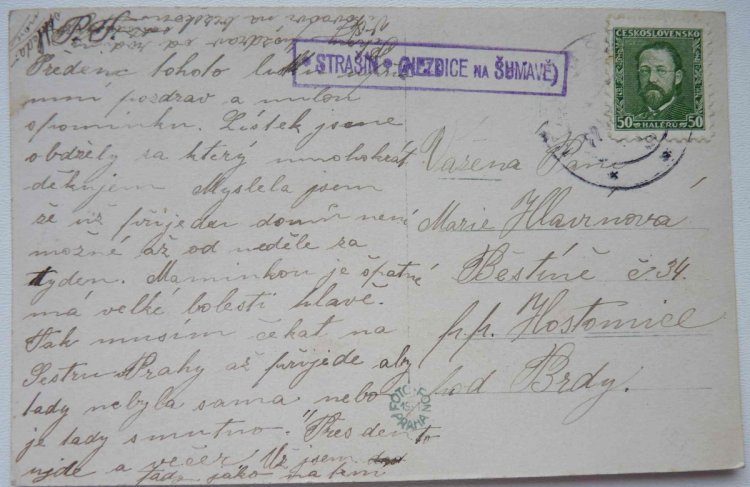 M. P. S.
STRAŠIN (NEZDICE NA ŠUMAVĚ)
ČESKOSLOVENSKO
50 HALÉŘŮ 50
Předem tohoto
mní pozdrav a milou
spomínku. Lístek jsme
obdržely za který mnohokrát
děkujem Myslela jsem
že už přijedu domů není
možné až od neděle za
tyden. Maminkou je špatně
má velké bolesti hlavě.
Tak musím čekat na
Sestru z Prahy až přijede aby
tady nebyla sama nebo
je tady smutno. Přes den to
ujde a večer. Už jsem
tady jako na tem
Vážená Paní
Marie Hlavínová
Běštíně č. 34.
p. p. Hostomice
pod Brdy.
FOTO-FON
PRAHA